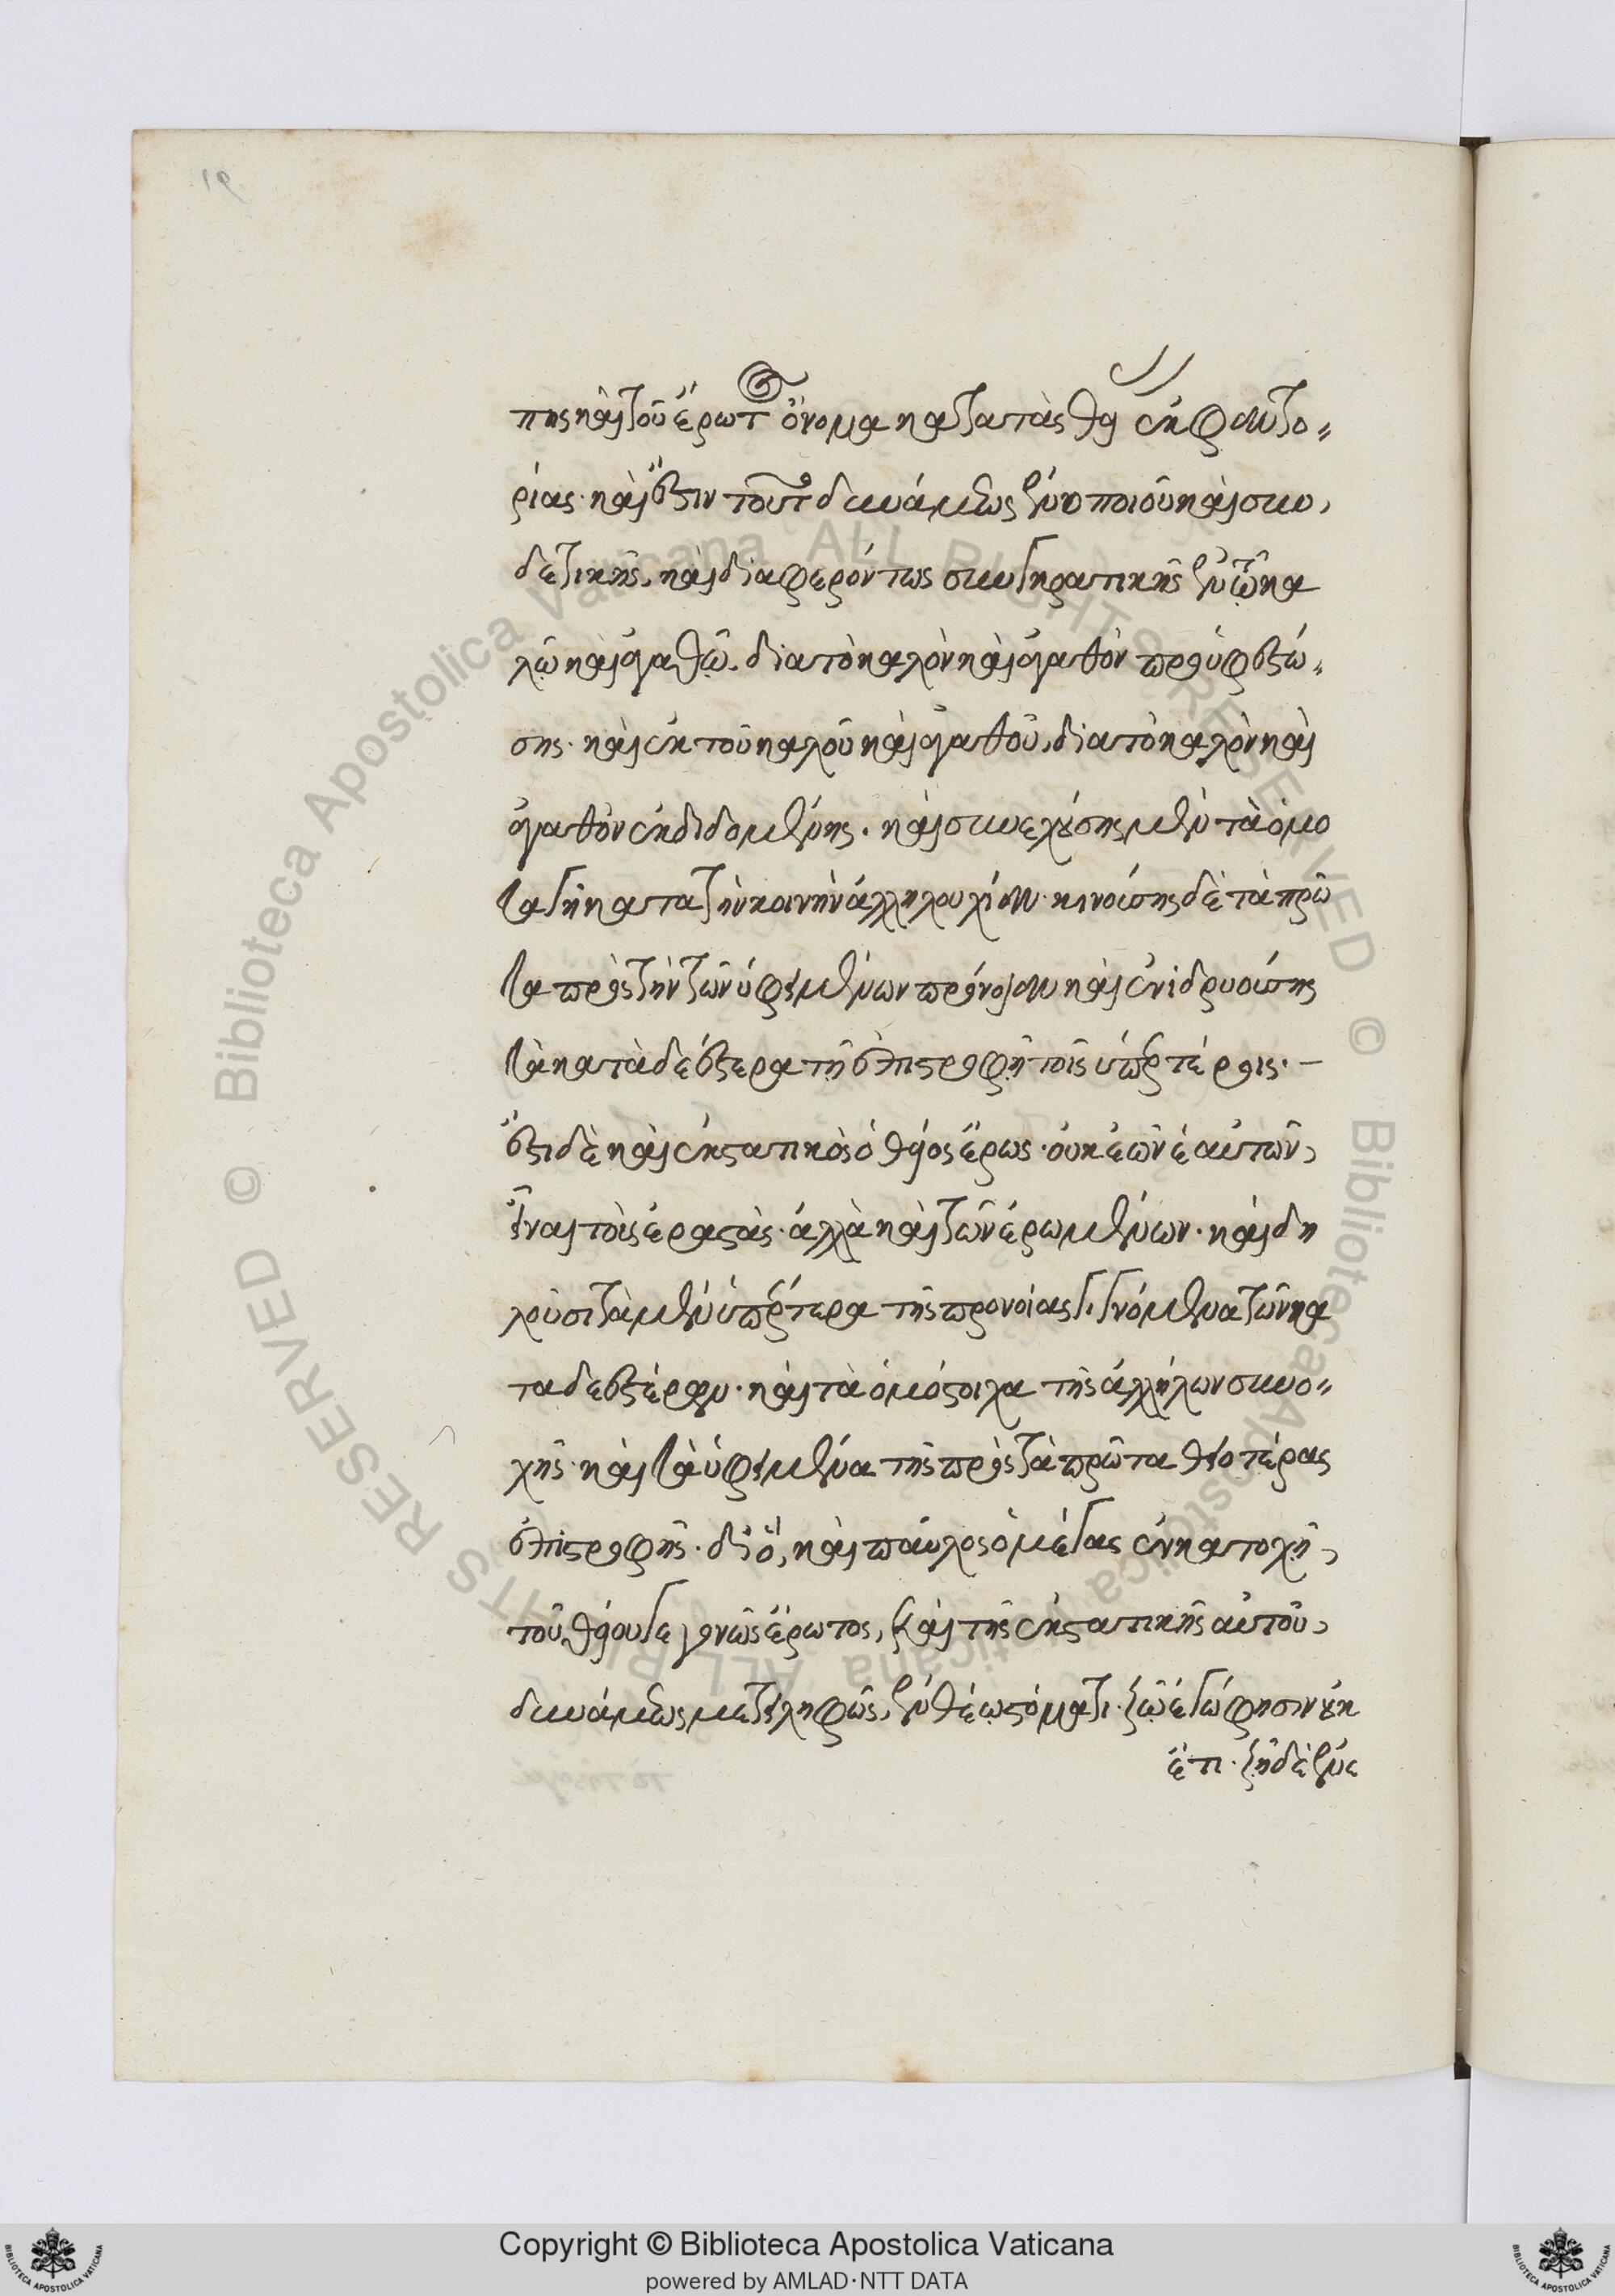 πης καὶ τοῦ ἔρωτος ὄνομα κατὰ τὰς θείας ἐκφαντο〃
ρίας· καὶ ἔστιν τοῦτο δυνάμεως ἑνοποιοῦ καὶ συν,
δετικῆς, καὶ διαφερόντως συγκρατικῆς ἐν τῷ κα
λῷ καὶ ἀγαθῷ. διὰ τὸ καλὸν καὶ ἀγαθὸν προϋφεστώ〃
σης· καὶ ἐκ τοῦ καλοῦ καὶ ἀγαθοῦ, διὰ τὸ καλὸν καὶ
ἀγαθὸν ἐκδιδομένης. καὶ συνεχούσης μὲν τὰ ὁμο
ταγῆ κατὰ τὴν κοινὴν ἀλληλουχίαν· κινούσης δὲ τὰ πρῶ
τα πρὸς τὴν τῶν ὑφειμένων πρόνοιαν καὶ ἐνιδρυούσης
τὰ καταδεέστερα τῇ ἐπιστροφῇ τοῖς ὑπερτέροις.—
ἔστι δὲ καὶ ἐκστατικὸς ὁ θεῖος ἔρως· οὐκ ἐῶν ἑαυτῶν,
εἶναι τοὺς ἐραστὰς· ἀλλὰ καὶ τῶν ἐρωμένων· καὶ δη
λοῦσι τὰ μὲν ὑπέρτερα τῆς προνοίας γιγνόμενα τῶν κα
ταδεεστέρων· καὶ τὰ ὁμόστοιχα τῆς ἀλλήλων συνο〃
χῆς· καὶ τὰ ὑφειμένα τῆς πρὸς τὰ πρῶτα θειοτέρας
ἐπιστροφῆς· διὸ, καὶ παῦλος ὁ μέγας ἐν κατοχῇ,
τοῦ θείου γεγονὼς ἔρωτος, καὶ τῆς ἐκστατικῆς αὐτοῦ,
δυνάμεως μετειληφὼς, ἐνθέῳ στόματι· ζῶ ἐγώ φησιν οὐκ
ἔτι· ζῇ δὲ ἐν ε
Copyright © Biblioteca Apostolica Vaticana
powered by AMLAD·NTT DATA